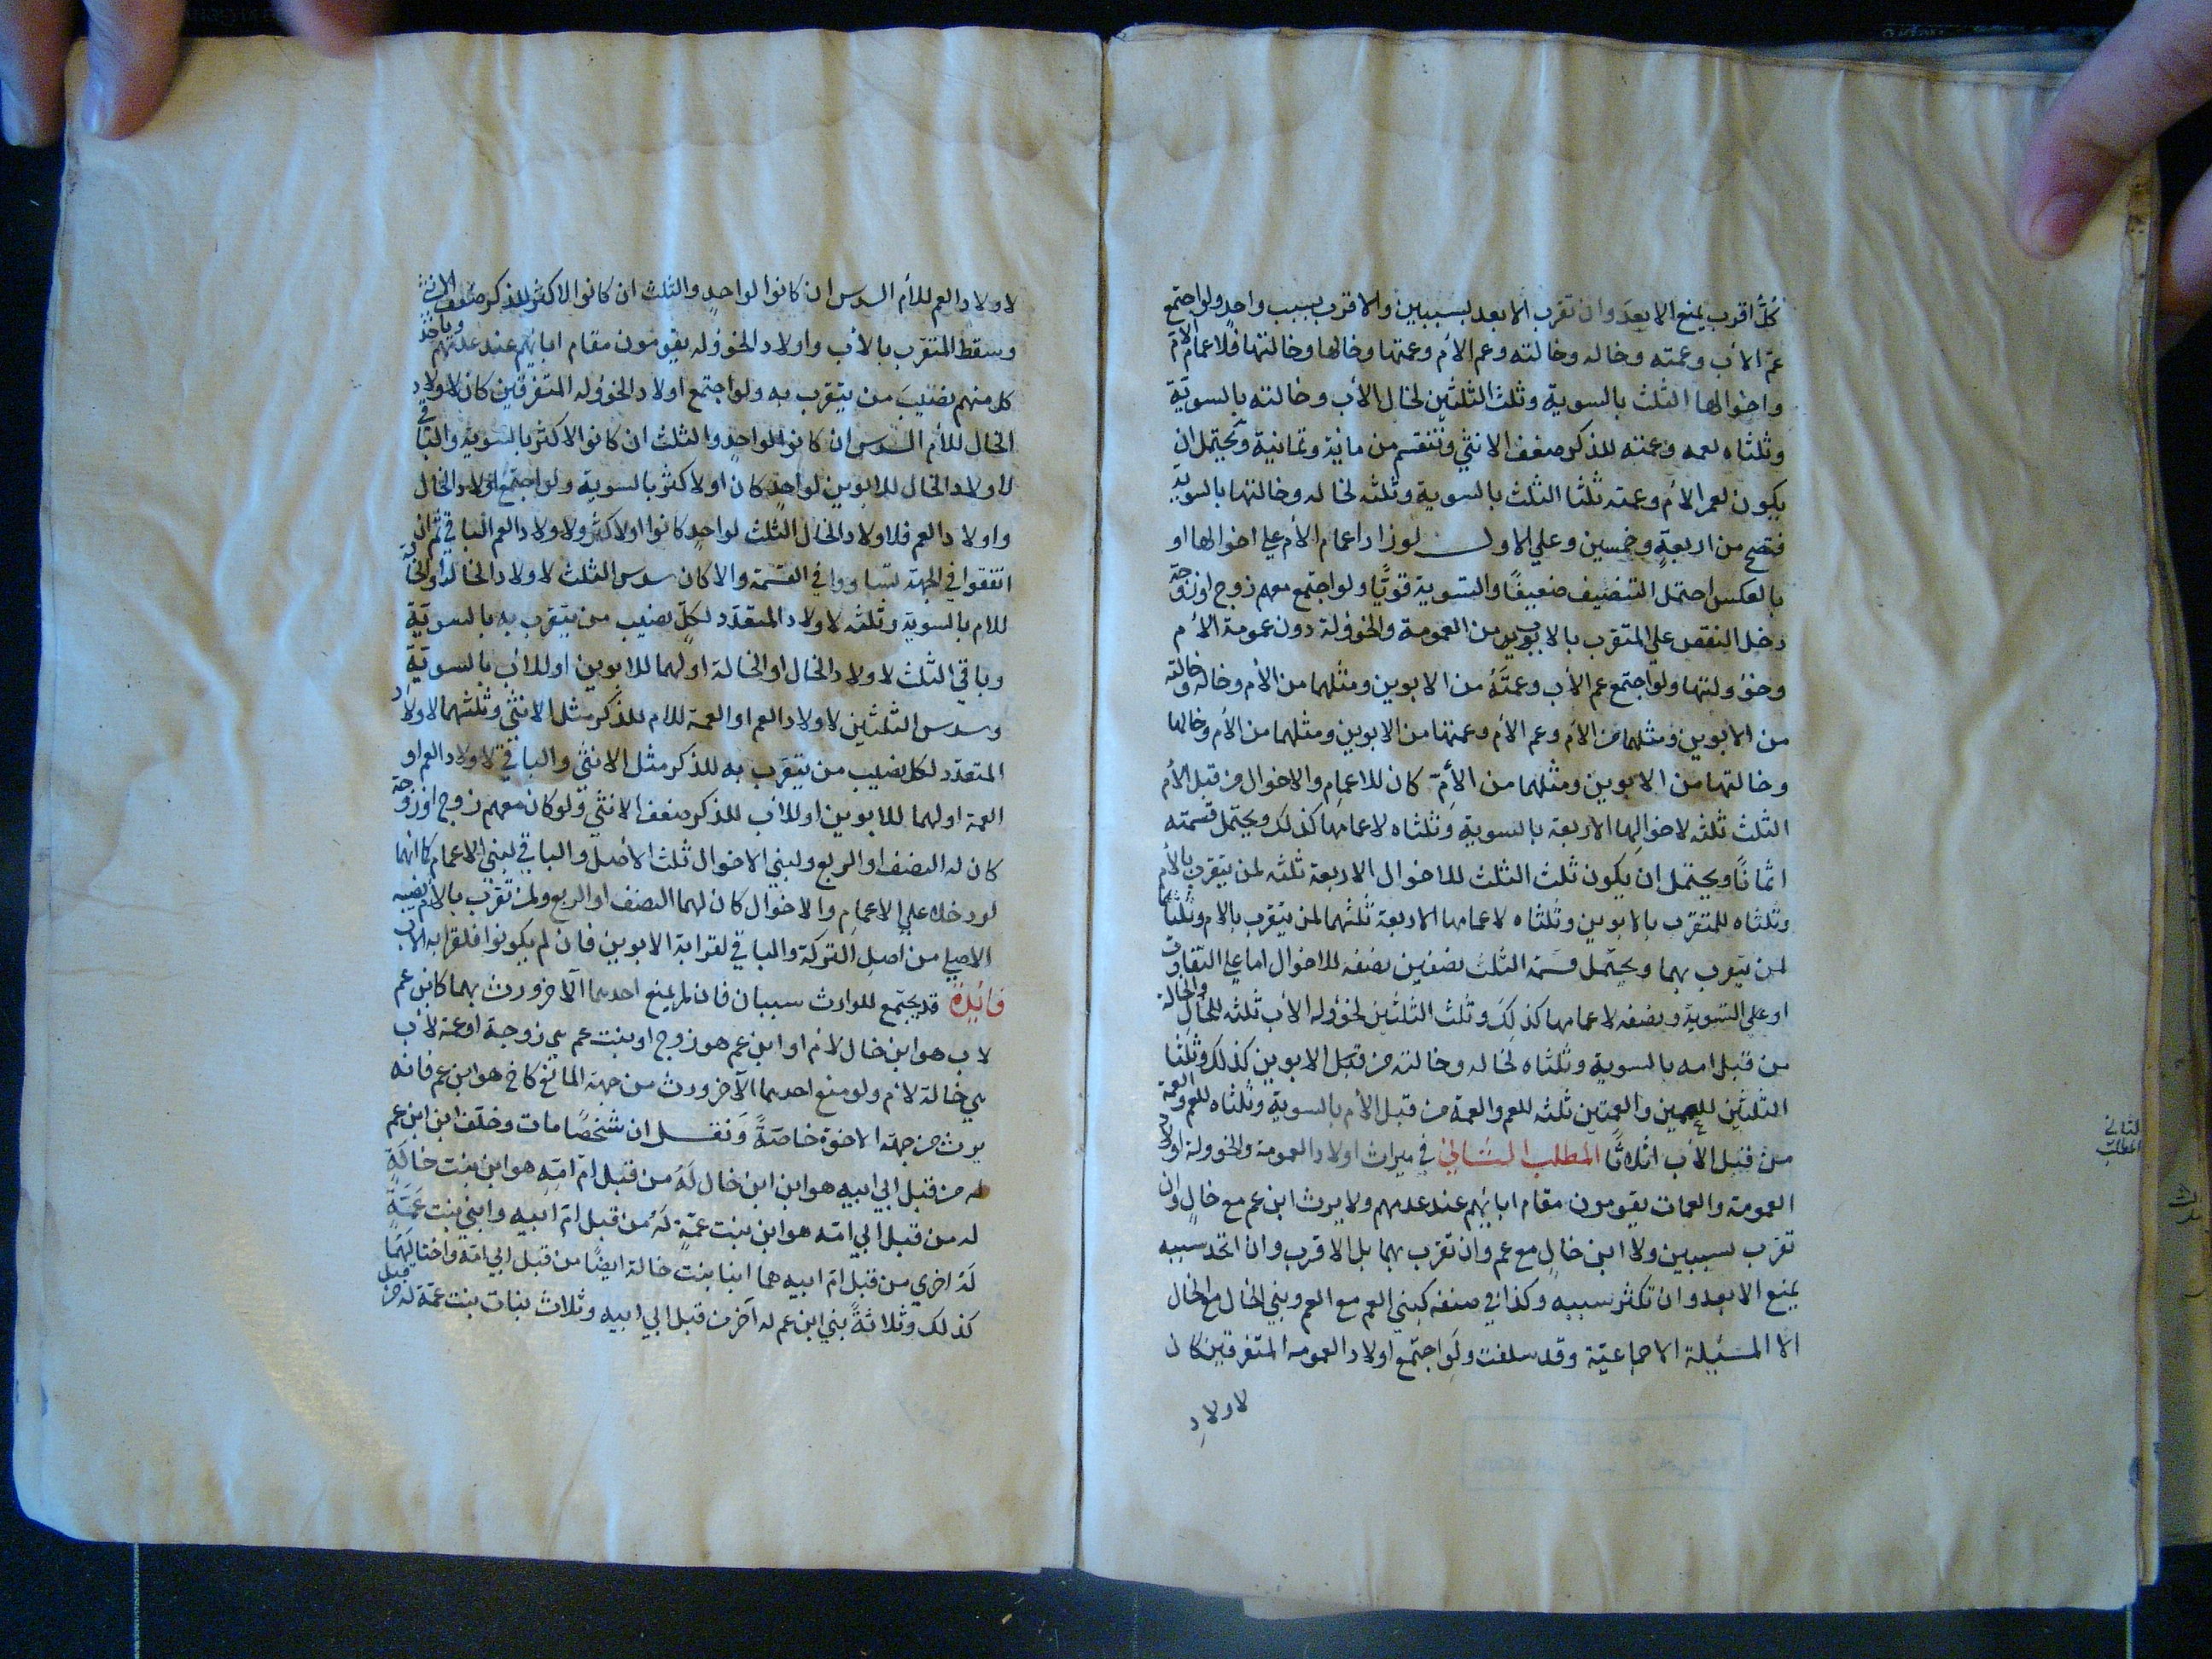 كل اقرب يمنع الابعد وان تقرب الابعد بسببين والاقرب بسبب واحد ولو اجتمع
عم الاب وعمته وخاله وخالته وعم الام وعمتها وخالها وخالتها فلاعمام الام
واخوالها الثلث بالسوية وثلث الثلثين لخال الاب وخالته بالسوية
وثلثاه لعمه وعمته للذكر ضعف الانثي وتنقسم من ماية وثمانية ويحتمل ان
يكون لعم الام وعمته ثلثا الثلث بالسوية وثلثه لخاله وخالتها بالسوية
فتصح من اربعة وخمسين وعلي الاول لو زاد اعمام الام علي اخوالها او
بالعكس احتمل التنصيف ضعيفًا والتسوية قويًا ولو اجتمع معهم زوج او زوجة
دخل النقص علي المتقرب بالابوين من العمومة والخؤولة دون عمومة الام
وخؤولتها ولو اجتمع عم الاب وعمته من الابوين ومثلهما من الام وخاله وخالته
من الابوين ومثلهما من الام وعم الام وعمتها من الابوين ومثلهما من الام وخالها
وخالتها من الابوين ومثلهما من الام كان للاعمام والاخوال من قبل الام
الثلث ثلثه لاخوالها الاربعة بالسوية وثلثاه لاعمامها كذلك ويحتمل قسمته
اثمانًا ويحتمل ان يكون ثلث الثلث للاخوال الاربعة ثلثه لمن يتقرب بالام
وثلثاه للمتقرب بالابوين وثلثاه لاعمامها الاربعة ثلثهما لمن يتقرب بالام وثلثاهما
لمن يتقرب بهما ويحتمل قسمة الثلث نصفين نصفه للاخوال اما علي التفاوت
او علي التسوية ونصفه لاعمامها كذلك وثلث الثلثين لخؤوله الاب ثلثه للخال والخالة
من قبل امه بالسوية وثلثاه لخاله وخالته من قبل الابوين كذلك وثلثا
الثلثين للعمين والعمتين ثلثه للعم والعمة من قبل الام بالسوية وثلثاه للعم والعمة
من قبل الاب اثلاثًا المطلب الثاني في ميراث اولاد العمومة والخوولة اولاد
العمومة والعمات يقومون مقام ابايهم عند عدمهم ولا يرث ابن عم مع خال وان
تقرب بسببين ولا ابن خال مع عم وان تقرب بهما بل الاقرب وان اتحد سببه
يمنع الابعد وان تكثر سببه وكذا في صنفه كبني العم مع العم وبني الخال مع الخال
الا المسئيلة الاجماعية وقد سلفت ولو اجتمع اولاد العمومه المتفرقين كان
لاولاد
الثاني
المطلب
لاولاد العم للام السدس ان كانوا لواحد والثلث ان كانوا لاكثر للذكر ضعف الانثي
وسقط المتقرب بالاب واولاد الخؤوله يقومون مقام ابايهم عند عدمهم وياخذ
كل منهم نصيب من يتقرب به ولو اجتمع اولاد الخؤوله المتفرقين كان لاولاد
الخال للام السدس ان كانوا لواحد والثلث ان كانوا لاكثر بالسوية والباقي
لاولاد الخال للابوين لواحد كان او لاكثر بالسوية ولو اجتمع اولاد الخال
واولاد العم فلاولاد الخال الثلث لواحد كانوا او لاكثر ولاولاد العم الباقي ثم ان
اتفقوا في الجهة تساووا في القسمة والا كان سدس الثلث لاولاد الخال او الخالة
للام بالسوية وثلثه لاولاد المتعدد لكل نصيب من يتقرب به بالسوية
وباقي الثلث لاولاد الخال او الخالة او لهما للابوين او للاب بالسوية
وسدس الثلثين لاولاد العم او العمة للام للذكر مثل الانثي وثلثهما لاولاد
المتعدد لكل نصيب من يتقرب به للذكر مثل الانثي والباقي لاولاد العم او
العمة او لهما للابوين او للاب للذكر ضعف الانثي ولو كان معهم زوج او زوجة
كان له النصف او الربع ولبني الاخوال ثلث الاصل والباقي لبني الاعمام كما انهما
لو دخلا علي الاعمام والاخوال كان لهما النصف او الربع ولمن تقرب بالام نصيبه
الاصلي من اصل التركة والباقي لقرابة الابوين فان لم يكونوا فلقرابه الاب
فائدة قد يجتمع للوارث سببان فان لم يمنع احدهما الآخر ورث بهما كابن عم
لاب هو ابن خال لام او ابن عم هو زوج او بنت عم هي زوجة او عمة لاب
هي خالة لام ولو منع احدهما الآخر ورث من جهة المانع كاخ هو ابن عم فانه
يرث من جهة الاخوة خاصة ونقل ان شخصًا مات وخلف ابن ابن عم
له من قبل ابي ابيه هو ابن ابن خال له من قبل ام امه هو ابن بنت خالة
له من قبل ابي امه هو ابن بنت عمة له من قبل ام ابيه وابني بنت عمة
له اخري من قبل ام ابيه هما ابنا بنت خالة ايضًا من قبل ابي امه واختا لهما
كذلك وثلاثة بني ابن عم له آخر من قبل ابي ابيه وثلاث بنات بنت عمة له من قبل